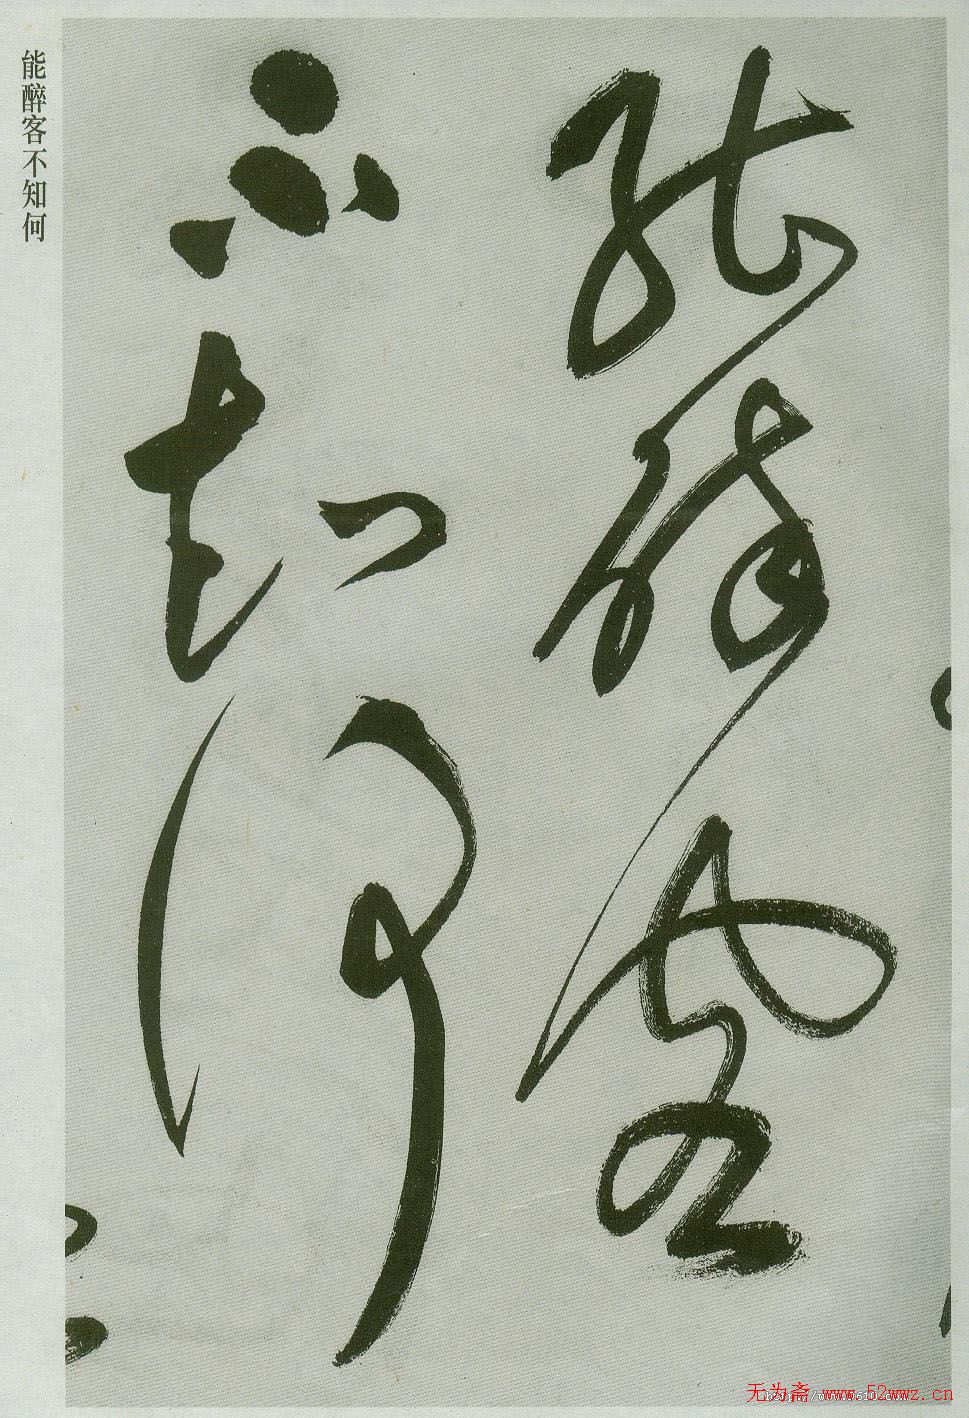 能醉客
不知何
能醉客不知何
无为斋 www.52wwz.cn